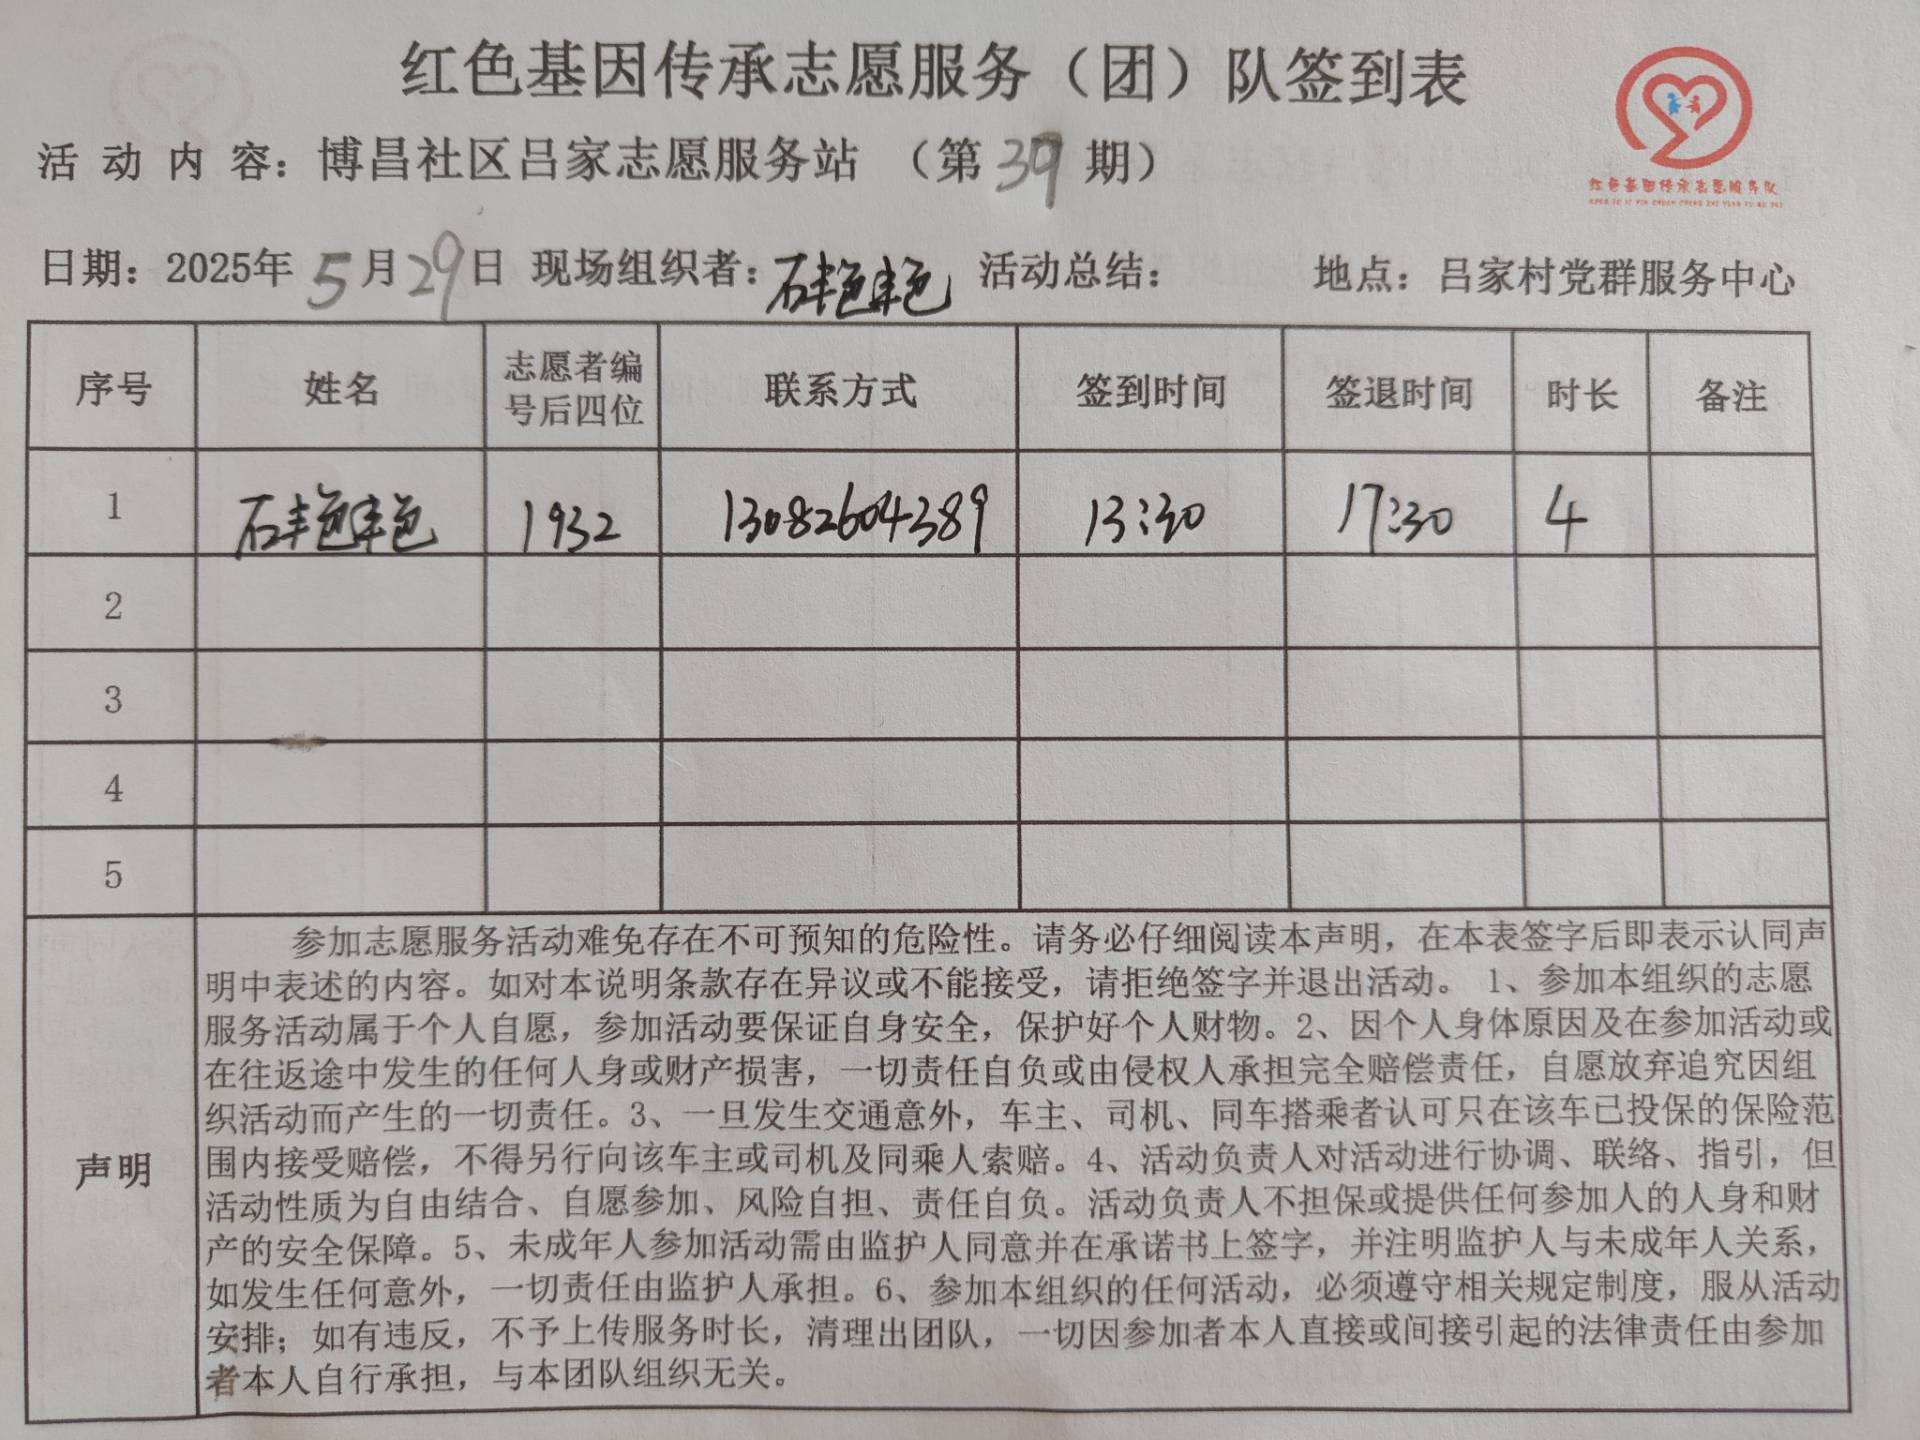 红色基因传承志愿服务（团）队签到表
活动内容：博昌社区吕家志愿服务站 （第39期）
红色基因传承志愿服务队
日期：2025年5月29日 现场组织者：石艳艳 活动总结： 地点：吕家村党群服务中心
序号 姓名 志愿者编号后四位 联系方式 签到时间 签退时间 时长 备注
1 石艳艳 1932 13082604389 13:30 17:30 4
2
3
4
5
声明
参加志愿服务活动难免存在不可预知的危险性。请务必仔细阅读本声明，在本表签字后即表示认同声
明中表述的内容。如对本说明条款存在异议或不能接受，请拒绝签字并退出活动。 1、参加本组织的志愿
服务活动属于个人自愿，参加活动要保证自身安全，保护好个人财物。2、因个人身体原因及在参加活动或
在往返途中发生的任何人身或财产损害，一切责任自负或由侵权人承担完全赔偿责任，自愿放弃追究因组
织活动而产生的一切责任。3、一旦发生交通意外，车主、司机、同车搭乘者认可只在该车已投保的保险范
围内接受赔偿，不得另行向该车主或司机及同乘人索赔。4、活动负责人对活动进行协调、联络、指引，但
活动性质为自由结合、自愿参加、风险自担、责任自负。活动负责人不担保或提供任何参加人的人身和财
产的安全保障。5、未成年人参加活动需由监护人同意并在承诺书上签字，并注明监护人与未成年人关系，
如发生任何意外，一切责任由监护人承担。6、参加本组织的任何活动，必须遵守相关规定制度，服从活动
安排；如有违反，不予上传服务时长，清理出团队，一切因参加者本人直接或间接引起的法律责任由参加
者本人自行承担，与本团队组织无关。